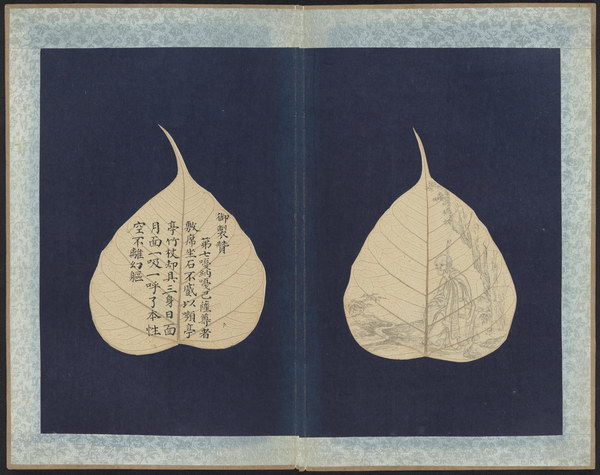 御製贊
第七嘎納嘎巴薩尊者
敷席坐石不以頞亭
亭竹杖却具三身日面
月面一吸一呼了本性
空不離幻軀